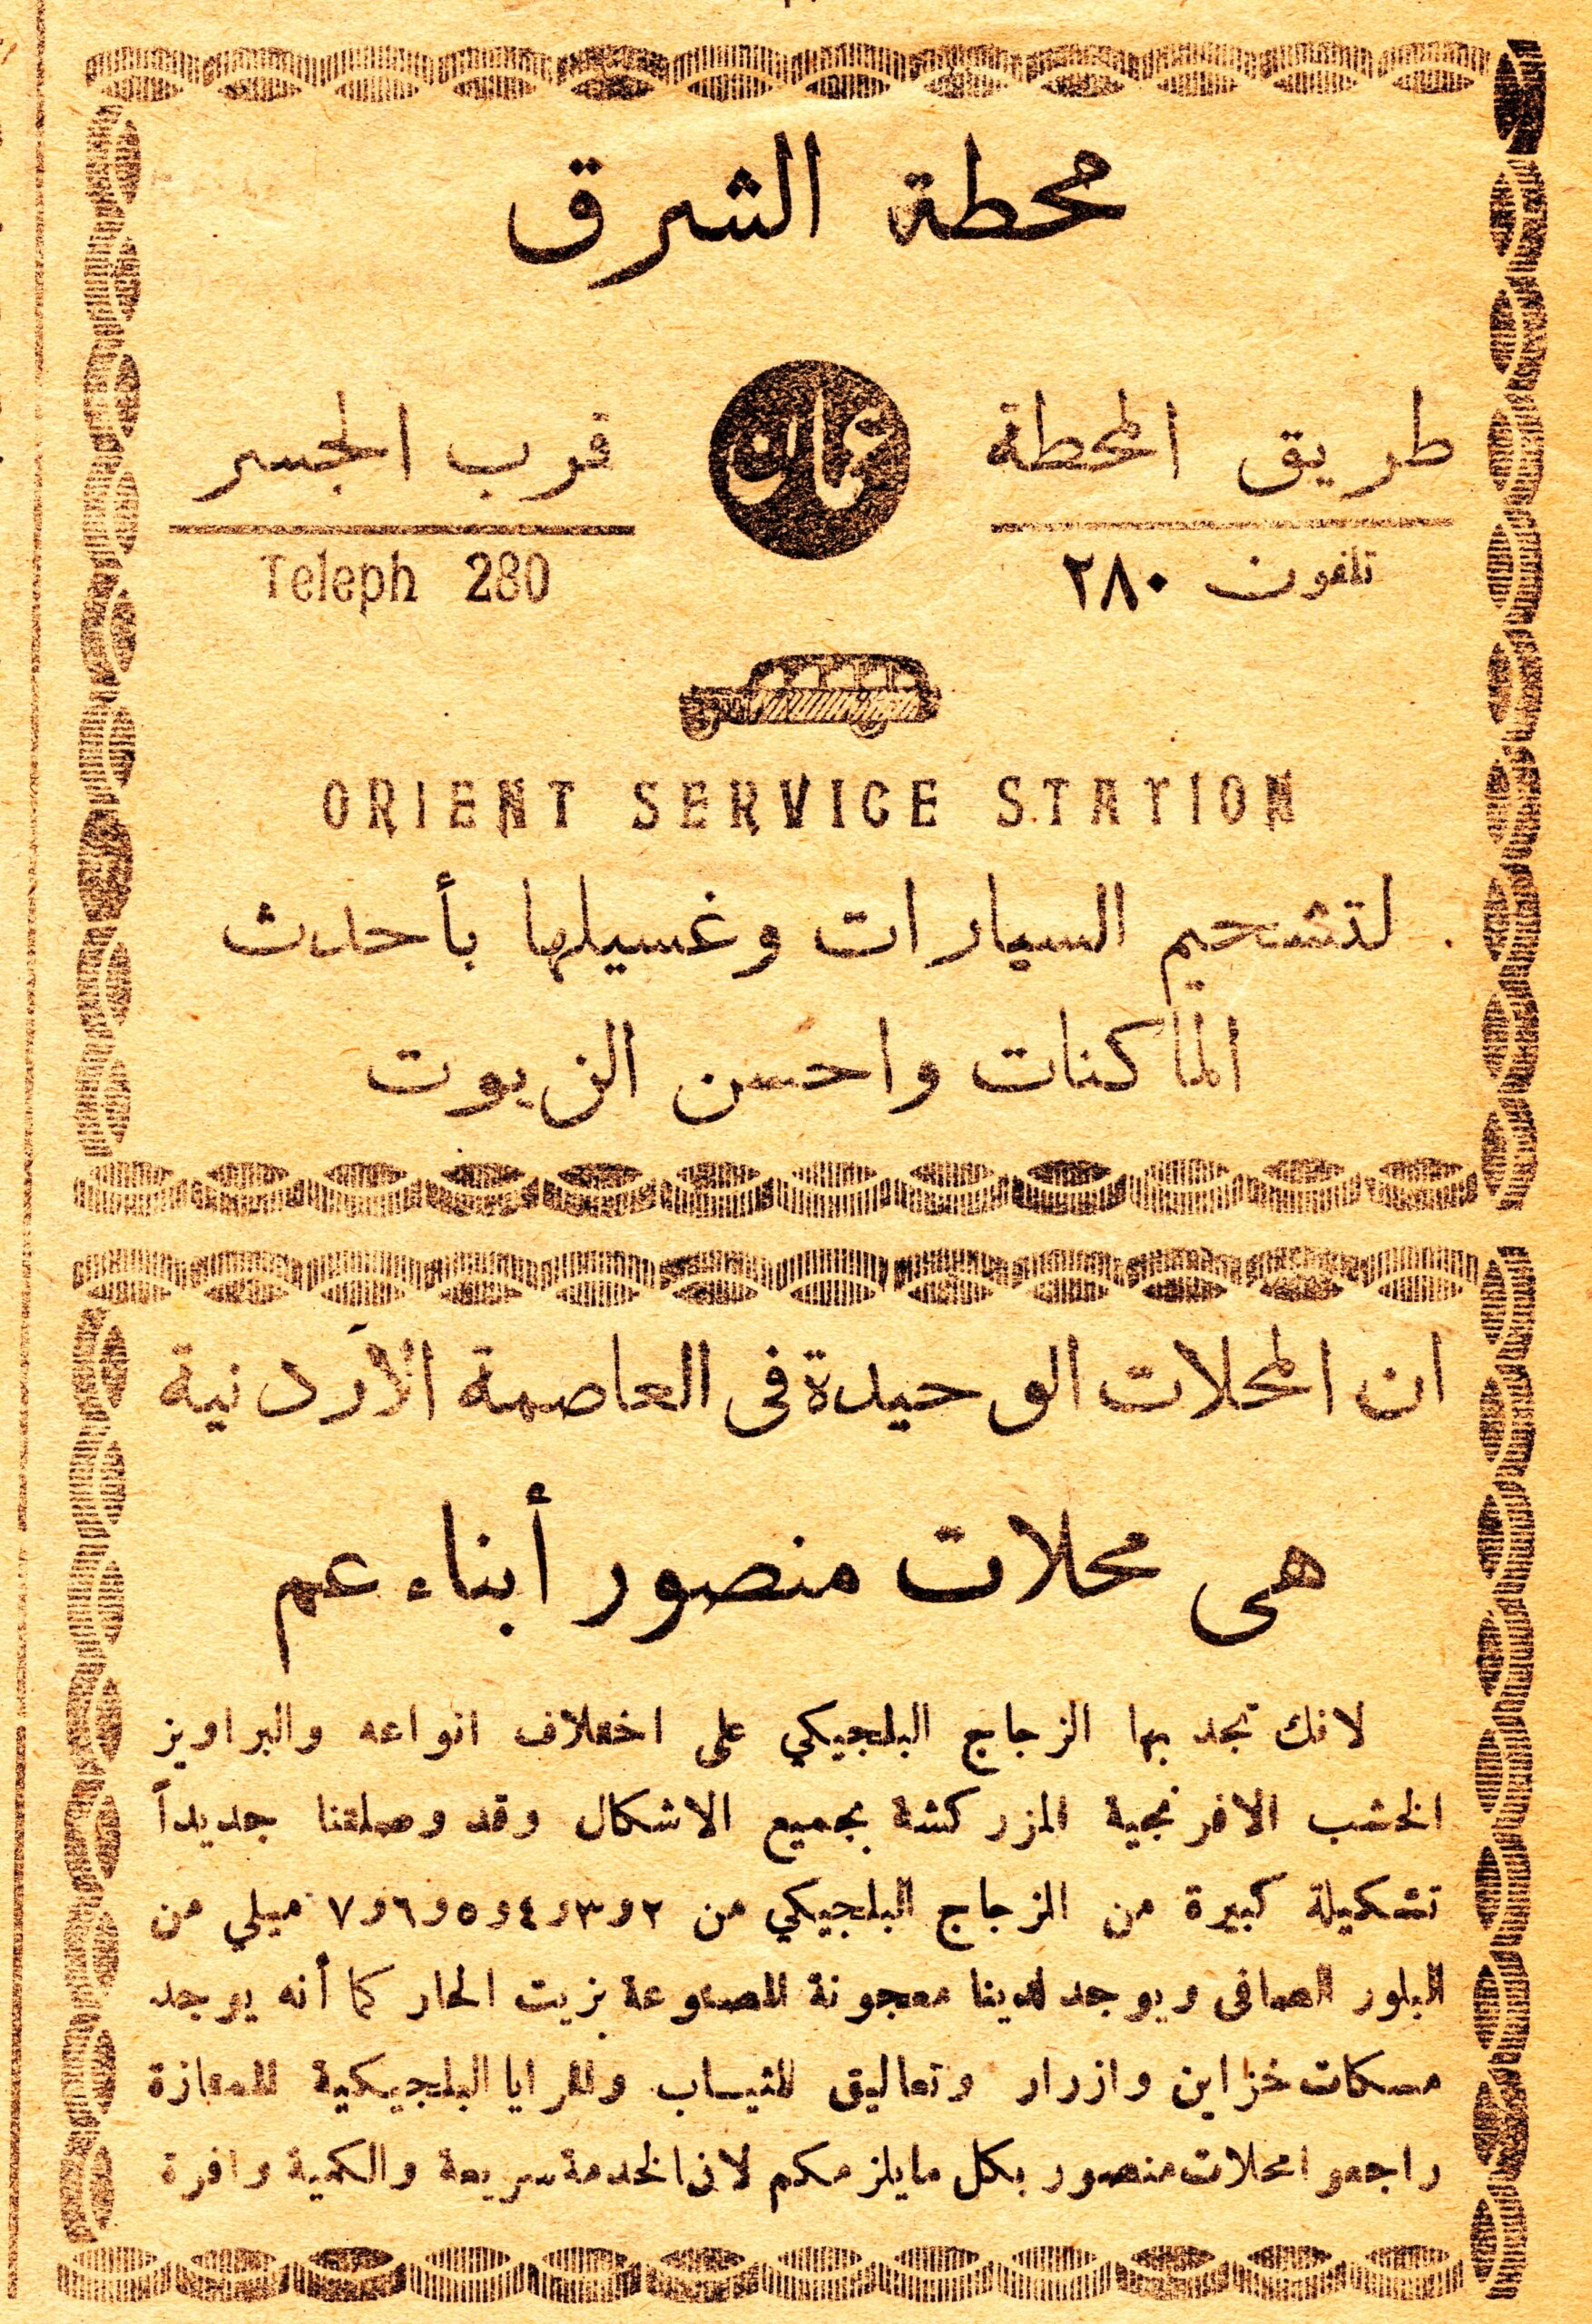 محطة الشرق
طريق المحطة
عمان
قرب الجسر
تلفون ٢٨٠
Teleph 280
ORIENT SERVICE STATION
لتشحيم السيارات وغسيلها بأحدث
الماكنات واحسن الزيوت
ان المحلات الوحيدة فى العاصمة الأردنية
هى محلات منصور أبناء عم
لانك تجد بها الزجاج البلجيكي على اختلاف انواعه والبراويز
الخشب الافرنجية المزركشة بجميع الاشكال وقد وصلتنا جديداً
تشكيلة كبيرة من الزجاج البلجيكي من ٢و٣و٤و٥و٦و٧ ميلي من
البلور الصافى ويوجد لدينا معجونة المصنوعة بزيت الحار كما أنه يوجد
مسكات خزاين وازرار وتعاليق للثياب والمرايا البلجيكية الممتازة
راجعوا محلات منصور بكل مايلزمكم لان الخدمة سريعة والكمية وافرة